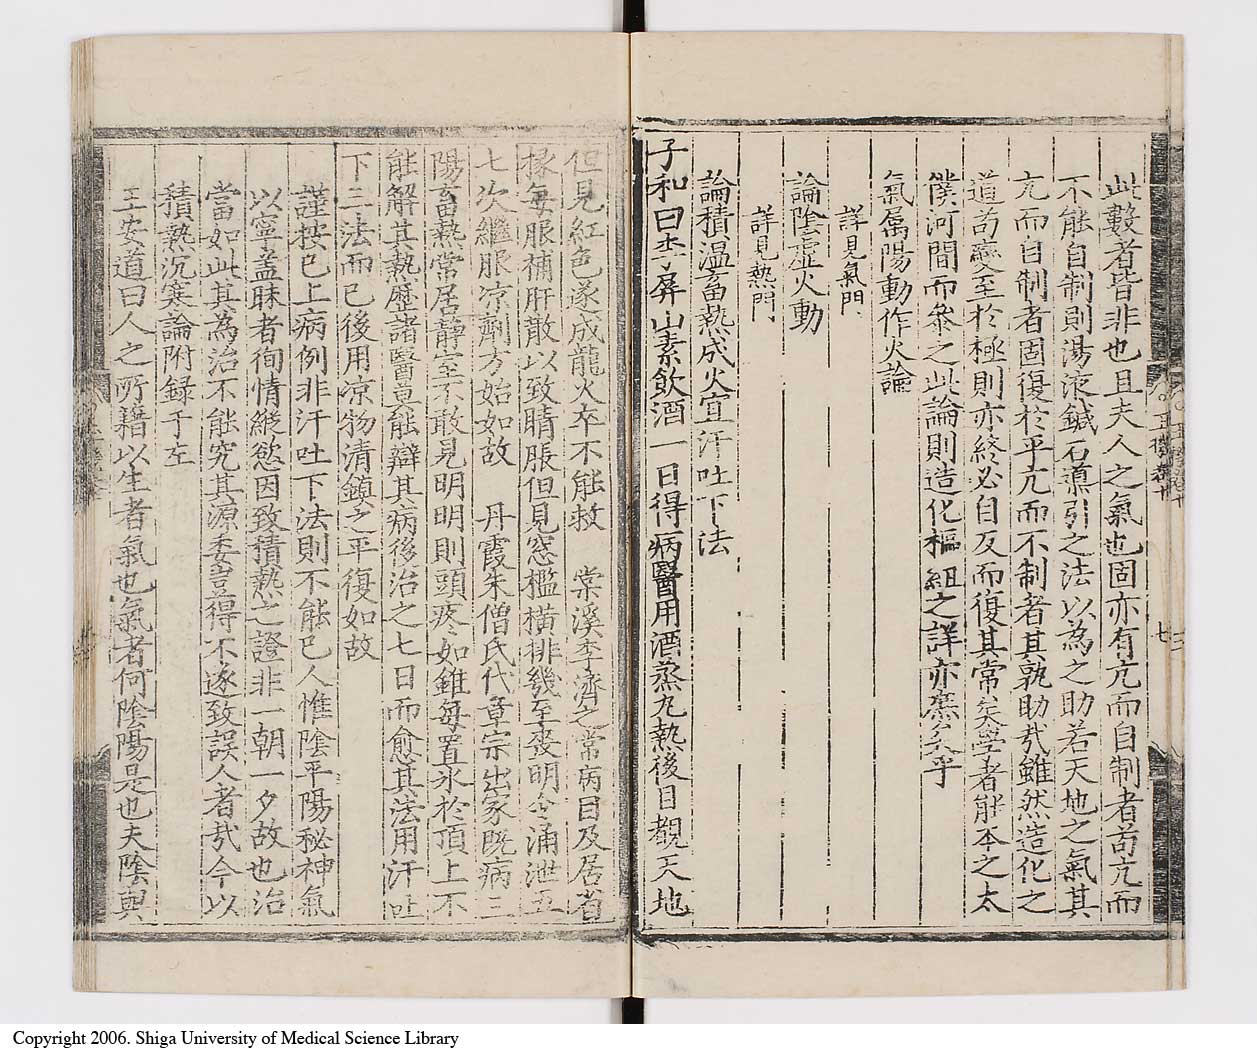 此數者皆非也且夫人之氣也固亦有亢而自制者苟亢而
不能自制則湯液鍼石導引之法以為之助若天地之氣其
亢而自制者固復於平亢而不制者其孰助㢤雖然造化之
道苟變至於極則亦終必自反而復其常矣學者能本之太
僕河間而參之此論則造化樞紐之詳亦庶乎
氣屬陽動作火論
詳見氣門
論陰虛火動
詳見熱門
論積溫畜熱成火宜汗吐下法
子和曰李屏山素飲酒一日得病醫用酒蒸九熱後目覩天地
但見紅色遂成龍火卒不能救 棠溪李濟之常病目及居省
掾每服補肝散以致睛脹但見窓檻橫排幾至喪明令涌泄五
七次繼服凉劑方始如故 丹霞朱僧氏代章宗出家既病三
陽畜熱常居靜室不敢見明明則頭疼如錐每置氷於頂上不
能解其熱歷諸醫莫能辯其病後治之七日而愈其法用汗吐
下三法而已後用凉物清鎮之平復如故
謹按已上病例非汗吐下法則不能已人惟陰平陽秘神氣
以寧盖昧者徇情縱慾因致積熱之證非一朝一夕故也治
當如此其為治不能究其源委豈得不遂致誤人者㢤今以
積熱沉寒論附録于左
王安道曰人之所藉以生者氣也氣者何陰陽是也夫陰與